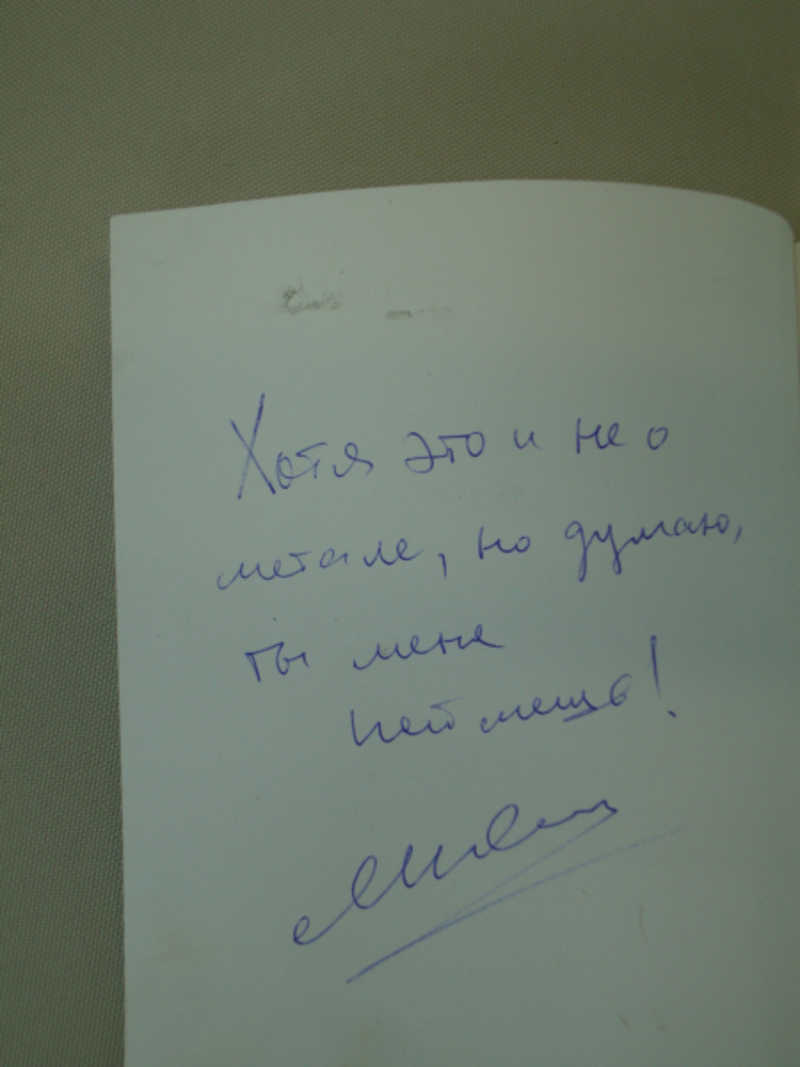 Хотя это и не о
метале, но думаю,
ты меня
поймешь!